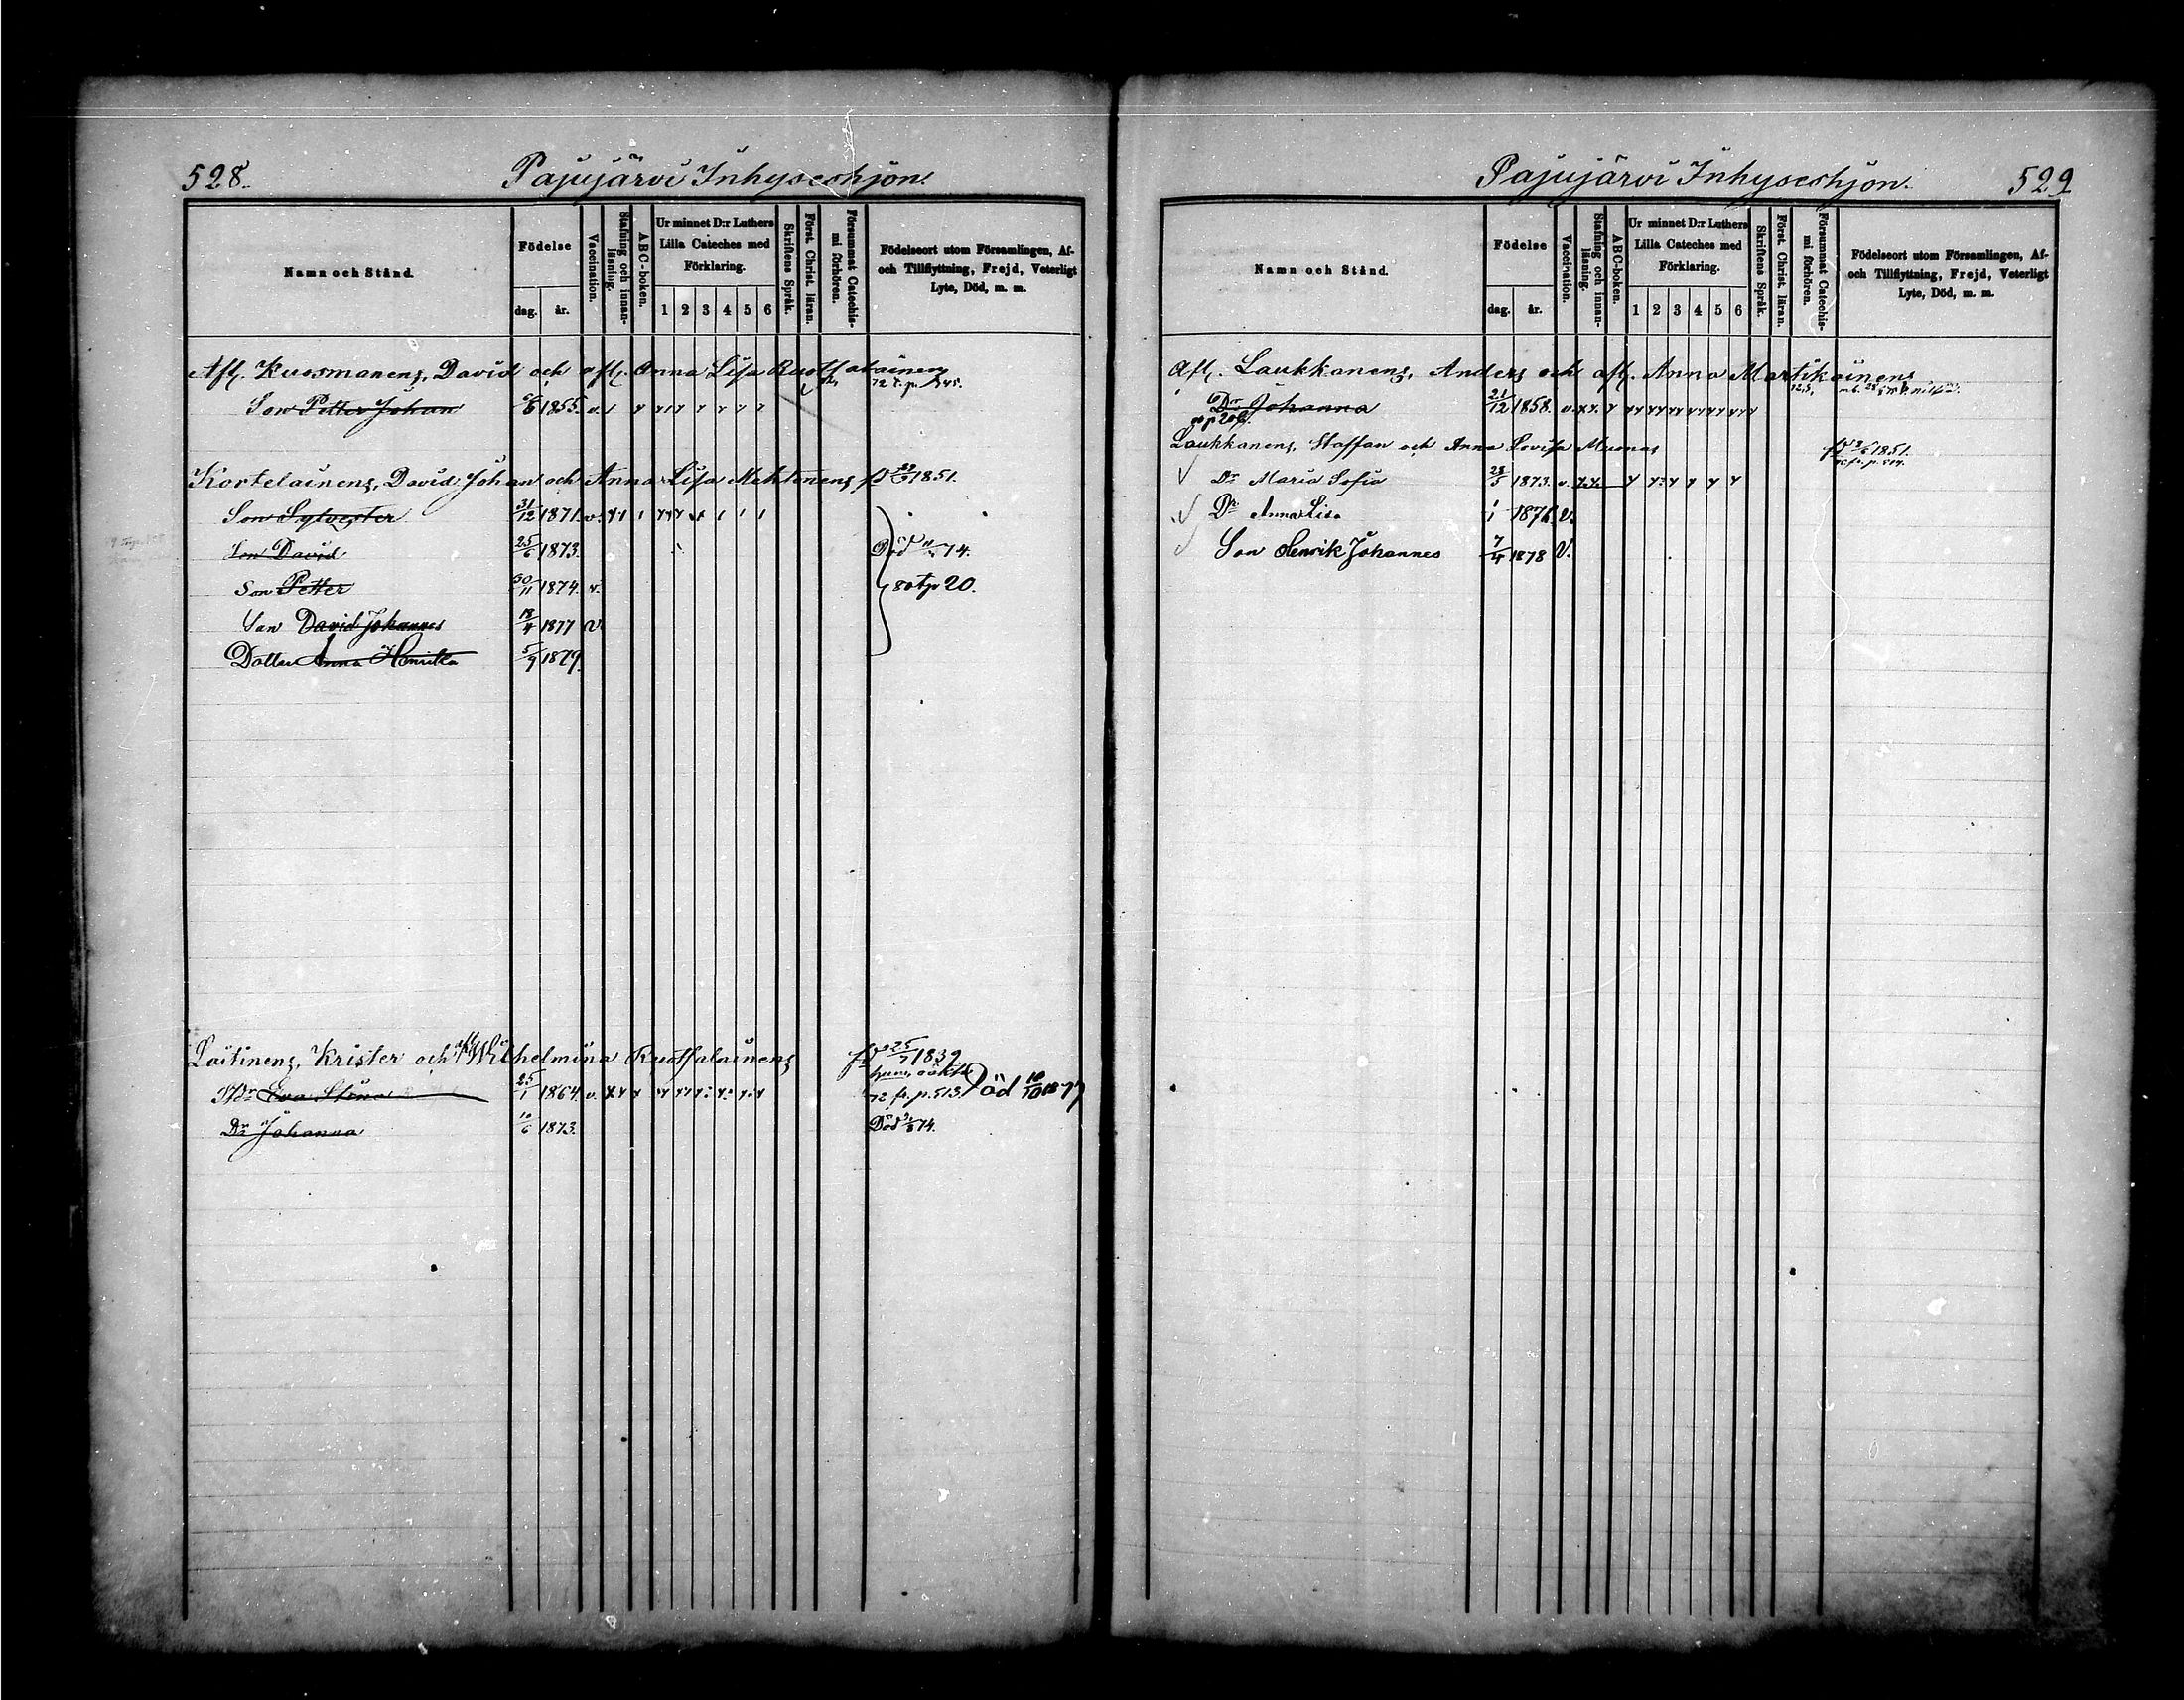 528.
Pajujärvi Inhyseshjon.
Namn och Stånd.
Födelse
dag.
år.
Vaccination.
Stafning och innanläsning.
ABC-boken.
Ur minnet D:r Luthers
Lilla Cateches med
Förklaring.
1 2 3 4 5 6
Skriftens Språk.
Först. Christ. läran.
Försummat Catechismi förhören.
Födelseort utom Församlingen, Af-
och Tillflyttning, Frejd, Veterligt
Lyte, Död, m. m.
Afl. Kuosmanens, David och afl. Anna Lisa Ruotsalainen
Son Petter Johan 6 1855. v.
Kortelainens, David Johan och Anna Lisa Mehtonens fd 1851.
Son Sylvester 31/12 1871. v.
Son David 25/6 1873. Död 74.
Son Petter 30/11 1874. v. 80 tp 20.
Son David Johannes 18/4 1877 v
Dotter Anna Henrika 5/9 1879.
Laitinens, Krister och Wilhelmina Ruotsalainens fd 25/7 1839
Eva Stina 25/1 1864. v. 72 fr. p. 513. Död 10/10 1877
Dr Johanna 10/6 1873. Död 74.
Pajujärvi Inhyseshjon.
529
Namn och Stånd.
Födelse
dag.
år.
Vaccination.
Stafning och innanläsning.
ABC-boken.
Ur minnet D:r Luthers
Lilla Cateches med
Förklaring.
1 2 3 4 5 6
Skriftens Språk.
Först. Christ. läran.
Försummat Catechismi förhören.
Födelseort utom Församlingen, Af-
och Tillflyttning, Frejd, Veterligt
Lyte, Död, m. m.
Afl. Laukkanens, Anders och afl. Anna Martikainens
Dr Johanna 21/12 1858. v.
Laukkanens, Staffan och Anna Lovisa Muonas fd 1851.
Dr Maria Sofia 28/5 1873. v.
Dr Anna Lisa 1/1 1876. v.
Son Henrik Johannes 7/4 1878 V.